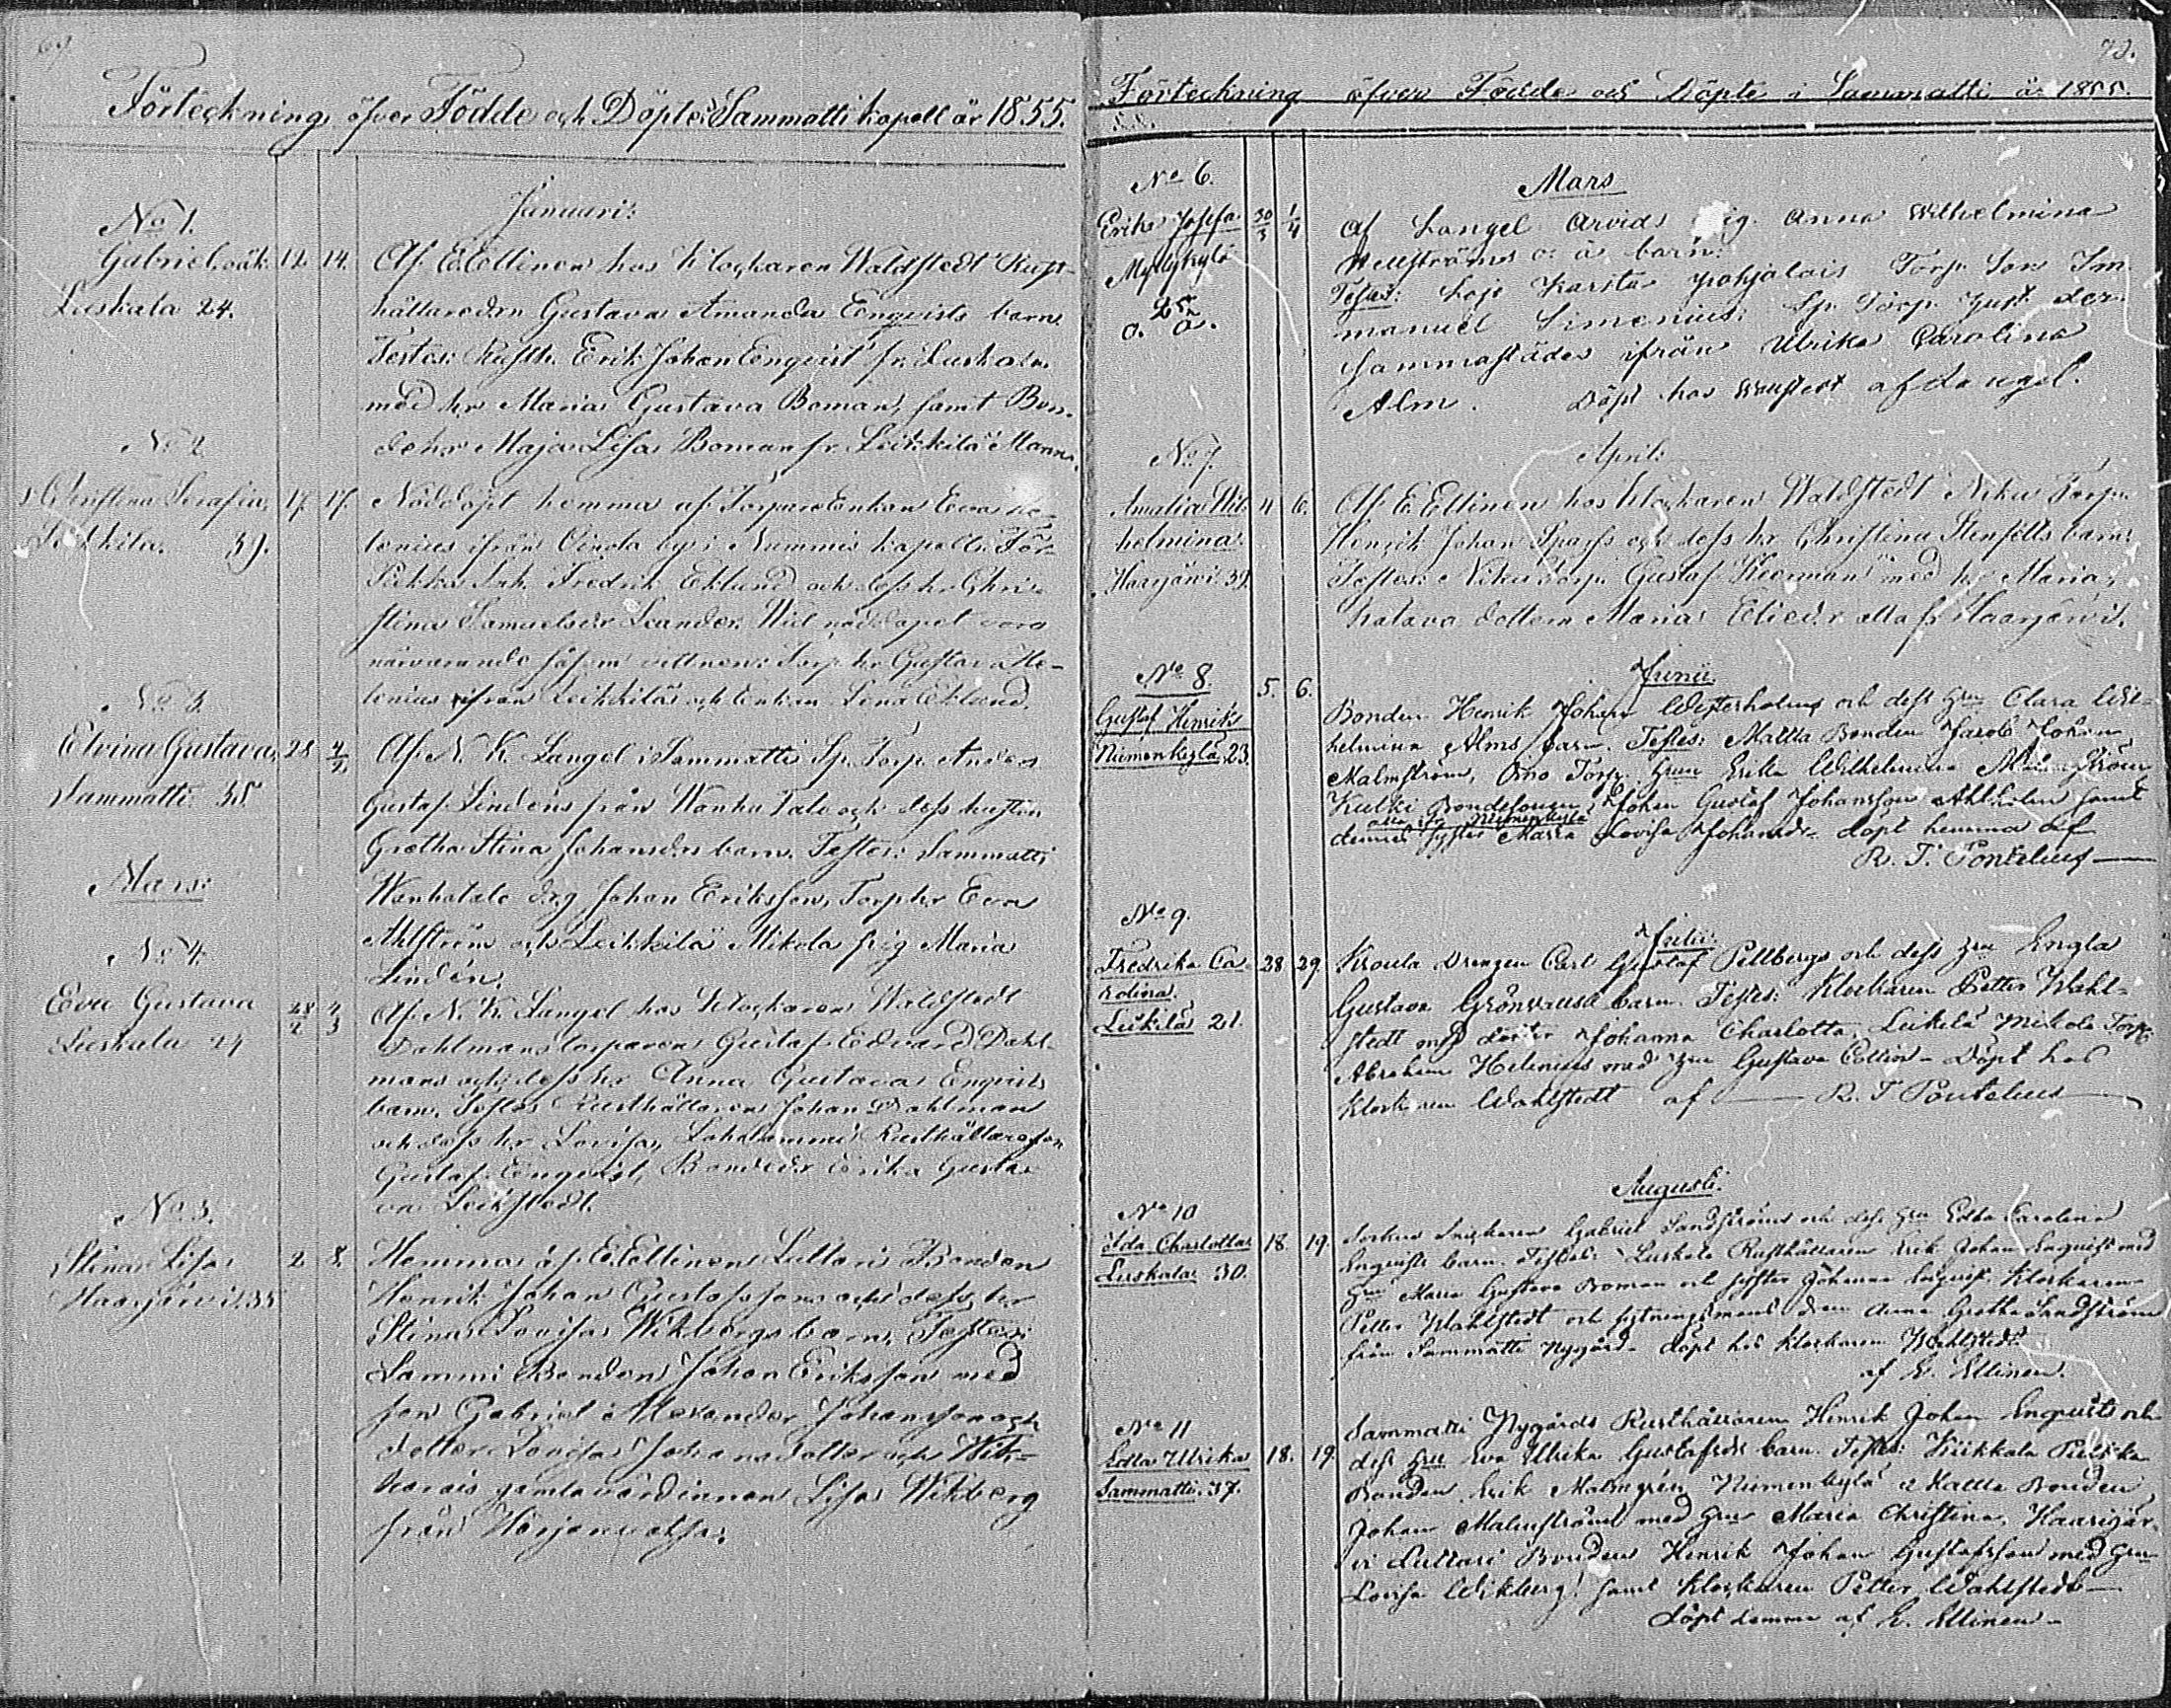 69
Förteckning öfver Födde och Döpte i Sammatti kapell år 1855.
Januari:
No 1.
Gabriel oäk. 12. 14.
Luskala 24.
Af E. Ellinen hos Klockaren Waldstedt Rust-
hållaredrn Gustava Amanda Enqvists barn.
Testes: Rusth. Erik Johan Enqvist fr. Luskala
med hr Maria Gustava Boman, samt Bon-
dehr Maja Lisa Boman fr. Leikkilä
No 2
Christina Serafia, 17. 17.
39.
Nöddöpt hemma af Torpare Enkan Eva He-
lenius ifrån Oinola by i Nummis kapell. För
Fredrik Eklund och dess hr Chri-
stina Samuelsdr Leander. Wid nöddopet voro
närvarande såsom vittnen: Torp. hr Gustava He-
lenius ifrån Leikkilä och Enkan Lena Eklund.
No 3
Elvina Gustava, 28 4/2
Sammatti 35
Af N. K. Langel i Sammatti Sp. Torp. Anders
Gustaf Lindens från Wanha Talo och dess hustru
Gretha Stina Johansdrs barn. Testes: Sammatti
Wanhatalo drg Johan Eriksson, Torp. hr Eva
Ahlström och Leikkilä Mikola pig Maria
Lindén.
Mars:
No 4.
Eva Gustava 28/2 4/3
Luskala 24
Af N. K. Langel hos Klockaren Waldstedt
Dahlmans torparen Gustaf Edvard Dahl-
mans och dess hr Anna Gustava Enqvists
barn. Testes Rusthållaren Johan Dahlman
och dess hr Lovisa, Rusthållareson
Gustaf Enqvist, Bondedr Erika Gusta-
va Leikstedt.
No 5.
Stina Lisa 2 8
Haarjärvi 35
Hemma af E. Ellinen Luttari Bonden
Henrik Johan Gustafssons och dess hr
Stina Lovisa Wikbergs barn. Testes:
Lammi Bonden Johan Eriksson med
son Gabriel Alexander Johansson och
dotter Lovisa Johansdotter och Wit-
karais gamla värdinnan Lisa Wikberg
från
73.
Förteckning öfver Födde och Döpte i Sammatti år 1855.
No 6.
Mars
Erika Josefa 30/3 1/4
Myllykylä
25
o. ä.
Af Langel Arvids pig. Anna Wilhelmina
Hellströms o. ä barn.
Testes: Lojo Karsta Pohjalais Torp. Son Im-
manuel Simenius. Sp. Torp. Just. der-
sammastädes ifrån Ulrika Carolina
Alm. Döpt hos af Langel.
No 7.
April:
Amalia Wil- 4 6.
helmina
Haarjärvi 39.
Af E. Ellinen hos Klockaren Waldstedt Niku Torp.
Henrik Johan Sparfs och dess hr Christina Stenfelts barn:
Testes: Niku Torp. Gustaf med hr Maria,
Katava dottern Maria Eliedr alla fr. Haarjärvi.
Junii.
No 8. 5. 6.
Gustaf Henrik
Niemenkylä. 23.
Bonden Henrik Johan Westerholms och dess hru Clara Wil-
helmina Alms barn. Testes: Mattla Bonden Jacob Johan
Malmström, Orno Torp. hru Erika Wilhelmina Malmström
Kulki Bondesonen Johan Gustaf Johansson Ahlholm samt
alla fr. Niemenkylä
dennes syster Maria Lovisa Johansdr döpt hemma af
R. T. Pontelius
Julii:
No 9.
Fredrika Ca- 28 29
rolina.
Leikilä 21.
Kroula Drengen Carl Gustaf Pellbergs och dess hru Engla
Gustava Grönvalls barn. Testes: Klockaren Petter Wahl-
stedt med doter Johanna Charlotta, Leikilä Mikola Torp.
Abraham Helenius med hru Gustava Collin. Döpt hos
Klockaren Wahlstedt af R. T. Pontelius
Augusti.
No 10
Ida Charlotta 18. 19.
Luskala 30.
Snickaren Gabriel Sandströms och dess hru Edla Carolina
Enqvists barn. Testes: Luskala Rusthållaren Erik Johan Enqvist med
hru Maria Gustava Boman och syster Johanna Enqvist. Klockaren
Petter Wahlstedt och sytningsmans drn Anna Gretha Sandström
från Sammatti Nygård. döpt hos Klockaren Wahlstedt
af E. Ellinen.
No 11
Edla Ulrika 18. 19
Sammatti. 37.
Sammatti Nygårds Rusthållaren Henrik Johan Enqvists och
dess hru Eva Ulrika Gustafsdrs barn. Testes: Kiikkala
Bonden Erik Malmgrén Niemenkylä Mattla Bonden
Johan Malmström med hru Maria Christina, Haarjär-
vi Luttari Bonden Henrik Johan Gustafsson med hru
Lovisa Wikberg samt Klockaren Petter Wahlstedt
döpt hemma af E. Ellinen